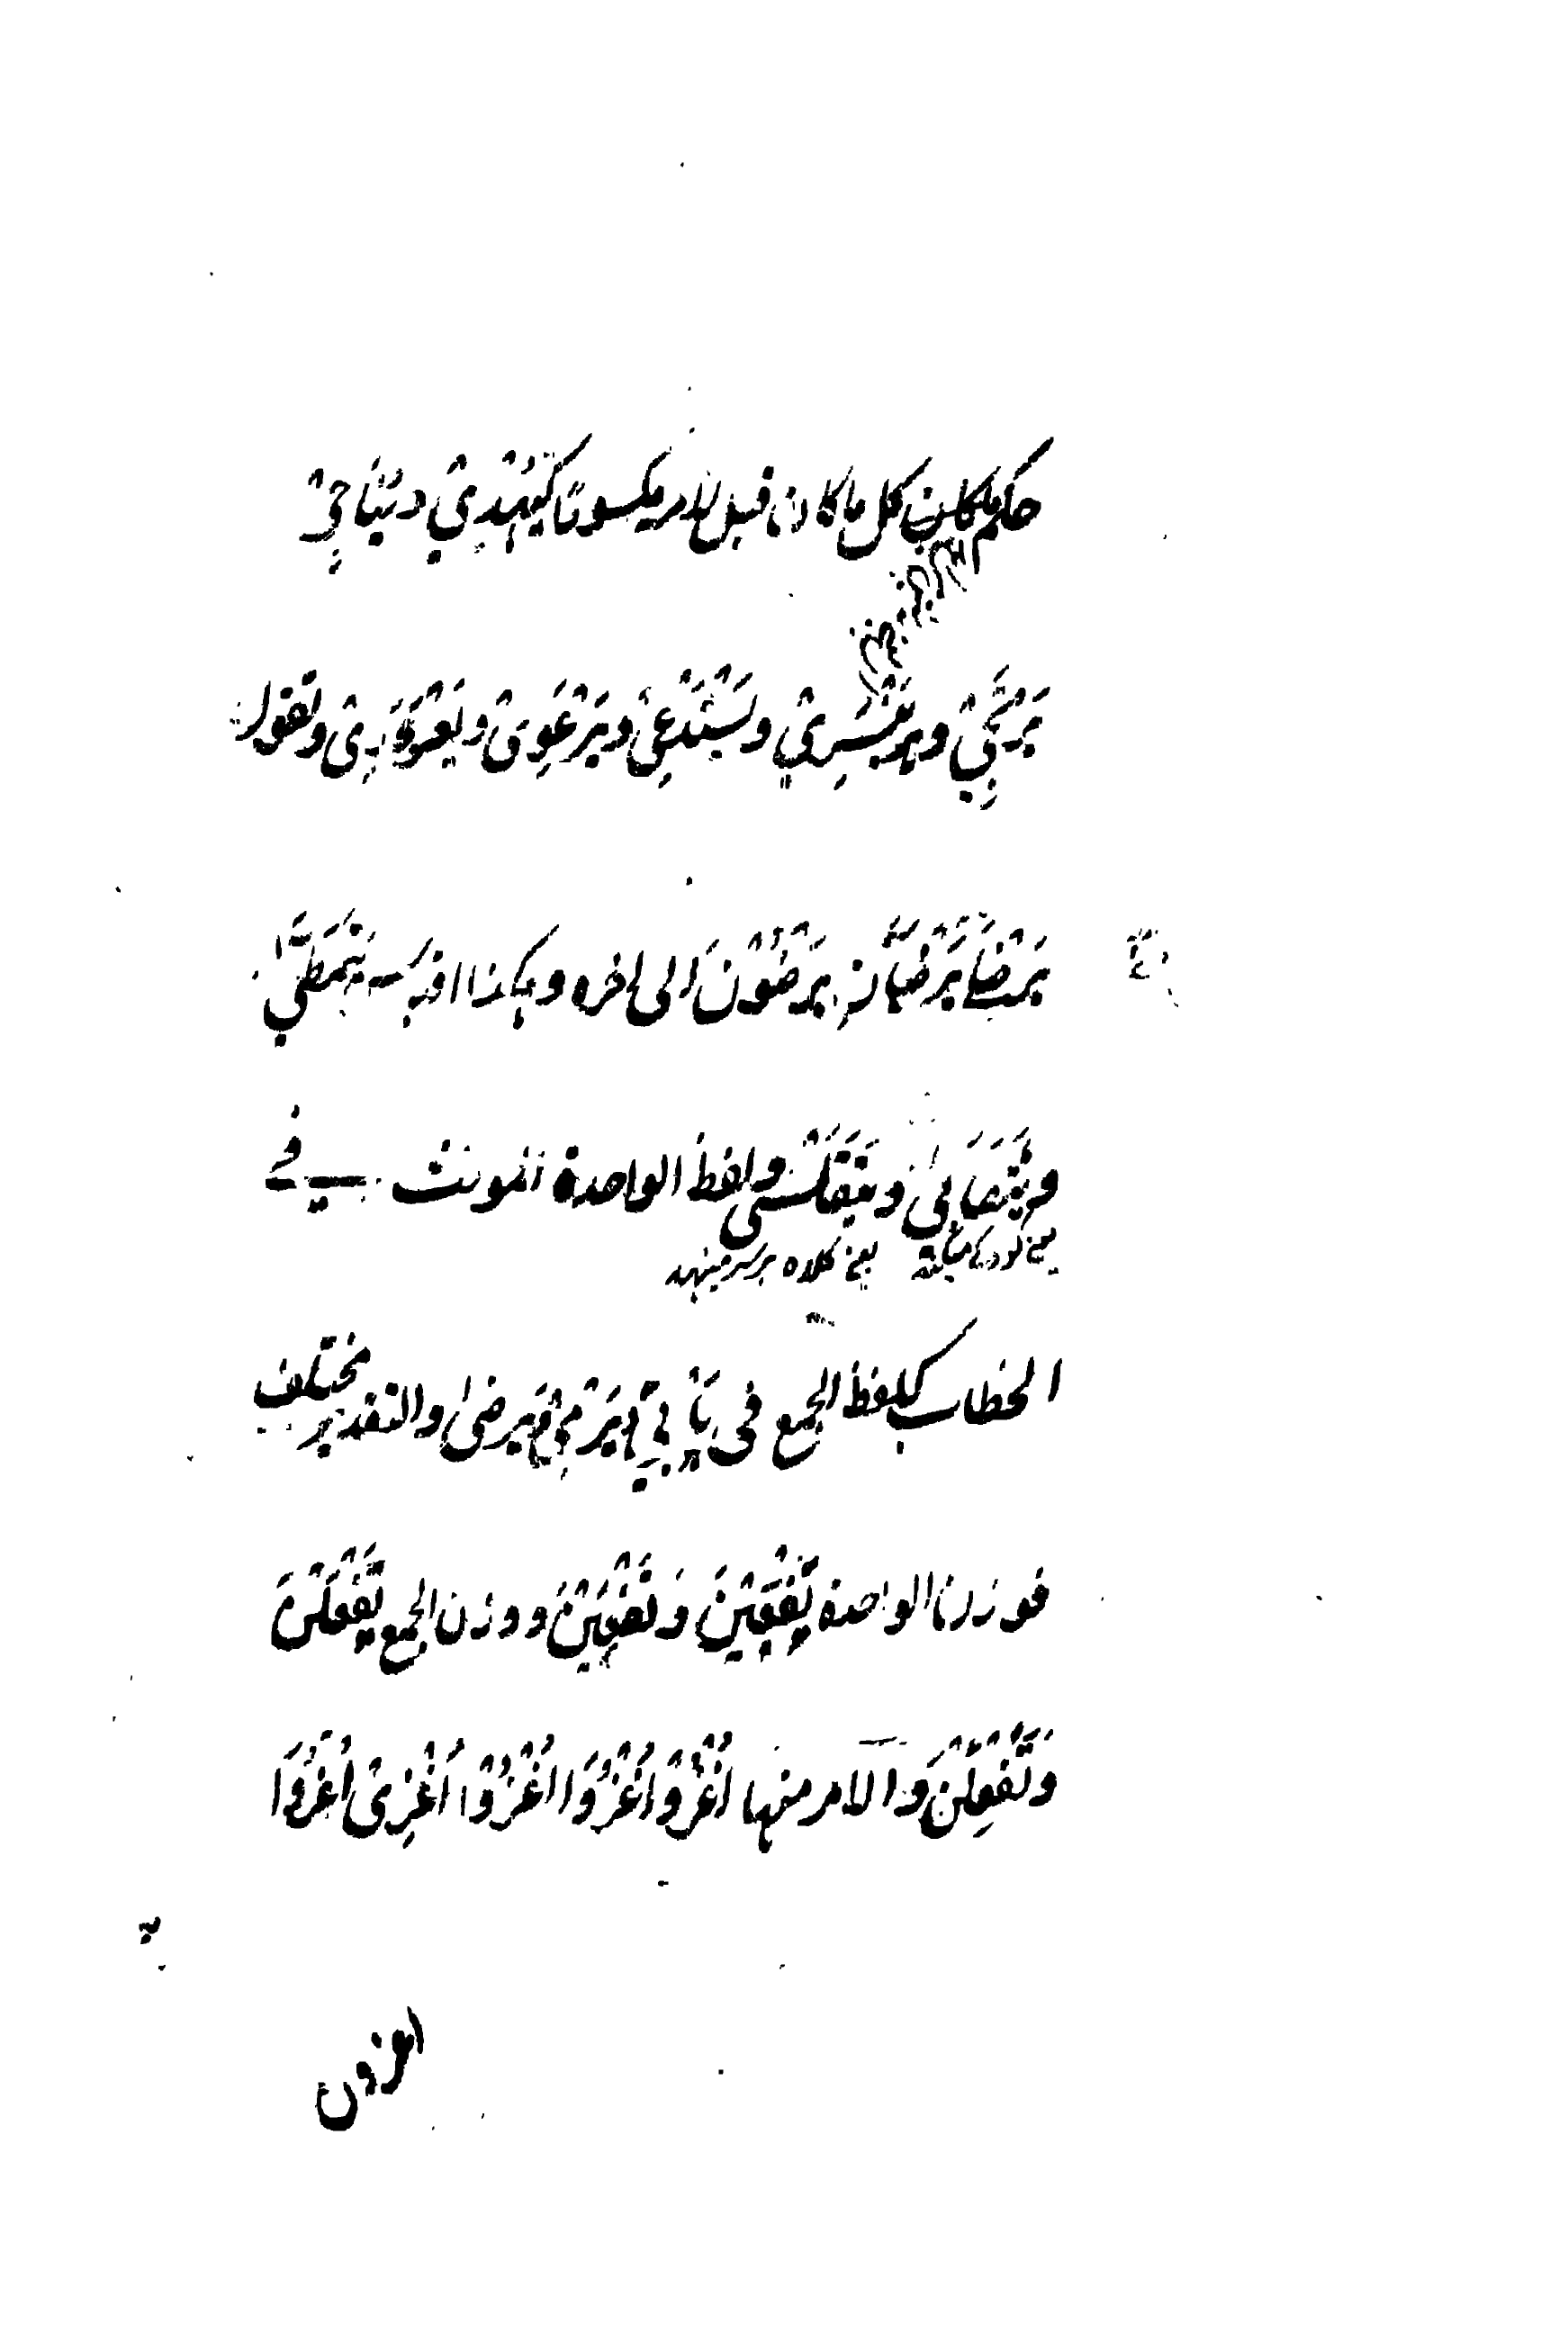 حكم كان كل ما كان قبل لامه مكسورًا كَيَهْدِيْ ويُنَاجِيْ
يَرْتَجِيْ وَيَنْبَرِيْ وَيَسْتَدْعِيْ وَيَرْعَوِيْ وَيَعْرَوْرِيْ وتقول
يَرْضَىٰ يَرْضَيَانِ يَرْضَوْنَ الى اخره وهكذا قياس يَتَمَطّٰى
وَيَتَصَابٰى وَيَتَقَلْسٰى ولفظ الواحدة المونث في
يعنى كلاه برسر مينهد
الخطاب كلفظ الجمع فى يَرْمِيْ وَيَرْضٰى والتقدير مختلف
فوزن الواحدة تَفْعِيْنَ وَتَفْعَيْنَ ووزن الجمع تَفْعَلْنَ
وَتَفْعِلْنَ وَالامر منها اُغْزُ اُغْزُوَا اُغْزُوْا اُغْزِىْ اُغْزُوَا
اغزون